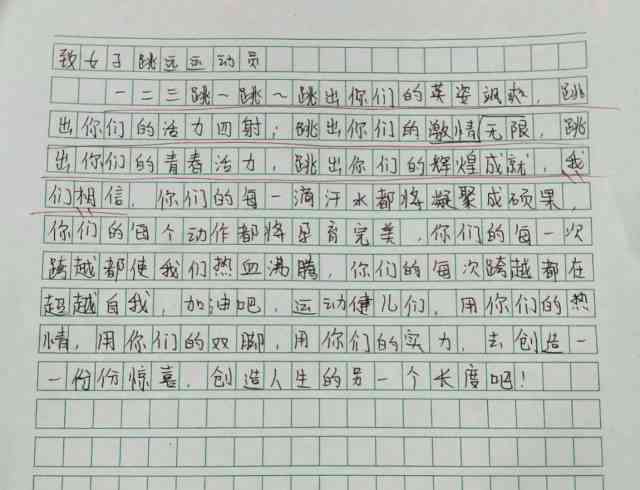 致女子跳远运动员
一二三跳~跳~跳出你们的英姿飒爽，跳
出你们的活力四射；跳出你们的激情无限，跳
出你们的青春活力，跳出你们的辉煌成就，我
们相信，你们的每一滴汗水都将凝聚成硕果，
你们的每个动作都将孕育完美，你们的每一次
跨越都使我们热血沸腾，你们的每次跨越都在
超越自我，加油吧，运动健儿们，用你们的热
情，用你们的双脚，用你们的实力，去创造一
一份份惊喜，创造人生的另一个长度吧！